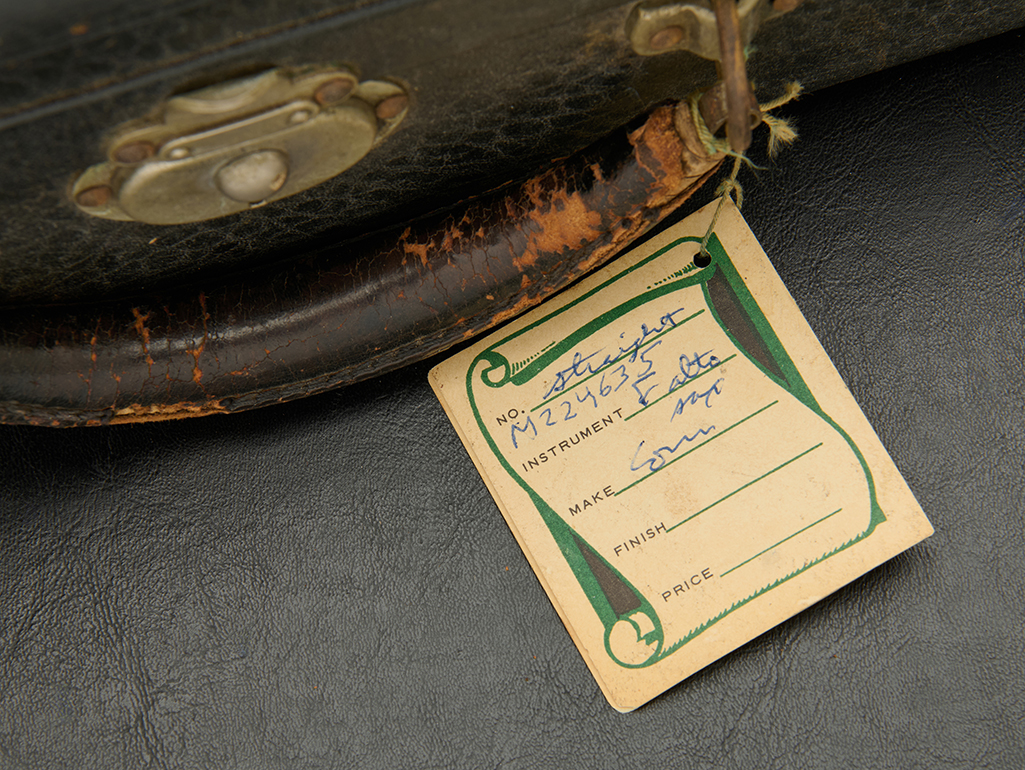 straight
NO. M224635
INSTRUMENT Eb alto
sax
MAKE Conn
FINISH
PRICE